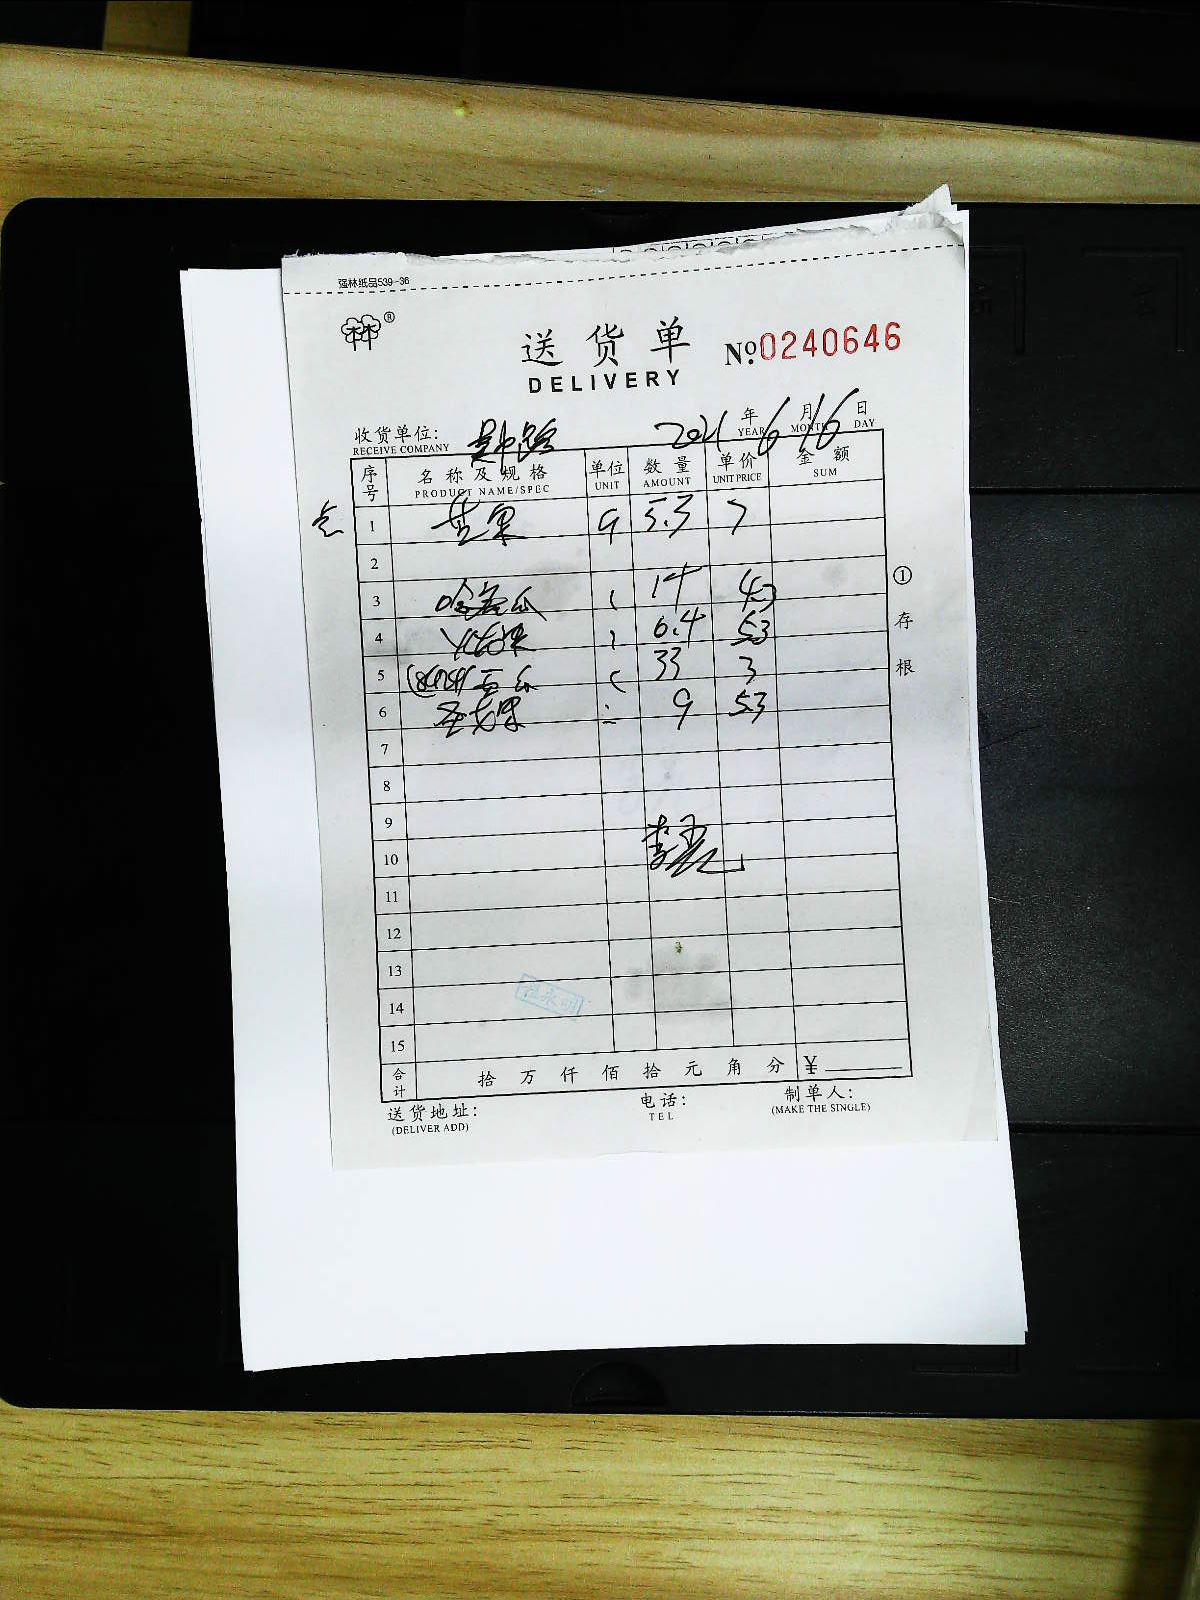 强林纸品539-36
林林®
送货单 №0240646
DELIVERY
收货单位: 2021 年 6 月 16 日
RECEIVE COMPANY YEAR MONTH DAY
序号 名称及规格 单位 数量 单价 金额
PRODUCT NAME/SPEC UNIT AMOUNT UNIT PRICE SUM
1 苹果 5.3 7
2
3 哈密瓜 14 4.3
4 6.4 5.3
5 33 3
6 圣女果 9 5.3
7
8
9
10
11
12
13
14
15
①存根
合计 拾 万 仟 佰 拾 元 角 分 ¥
送货地址: 电话: 制单人:
(DELIVER ADD) TEL (MAKE THE SINGLE)